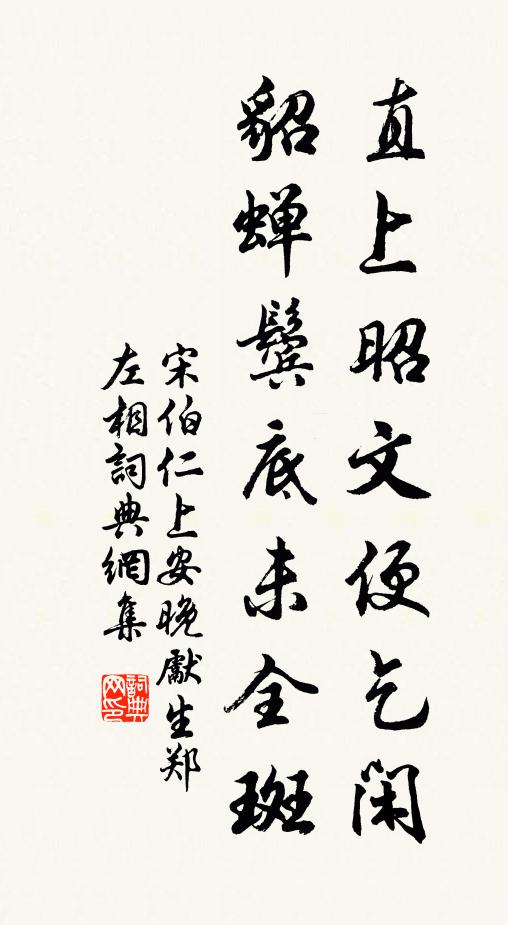 直上昭文便乞闲
貂蝉鬓底未全斑
宋伯仁上安晚献生郑
左相詞典網集
詞典网印